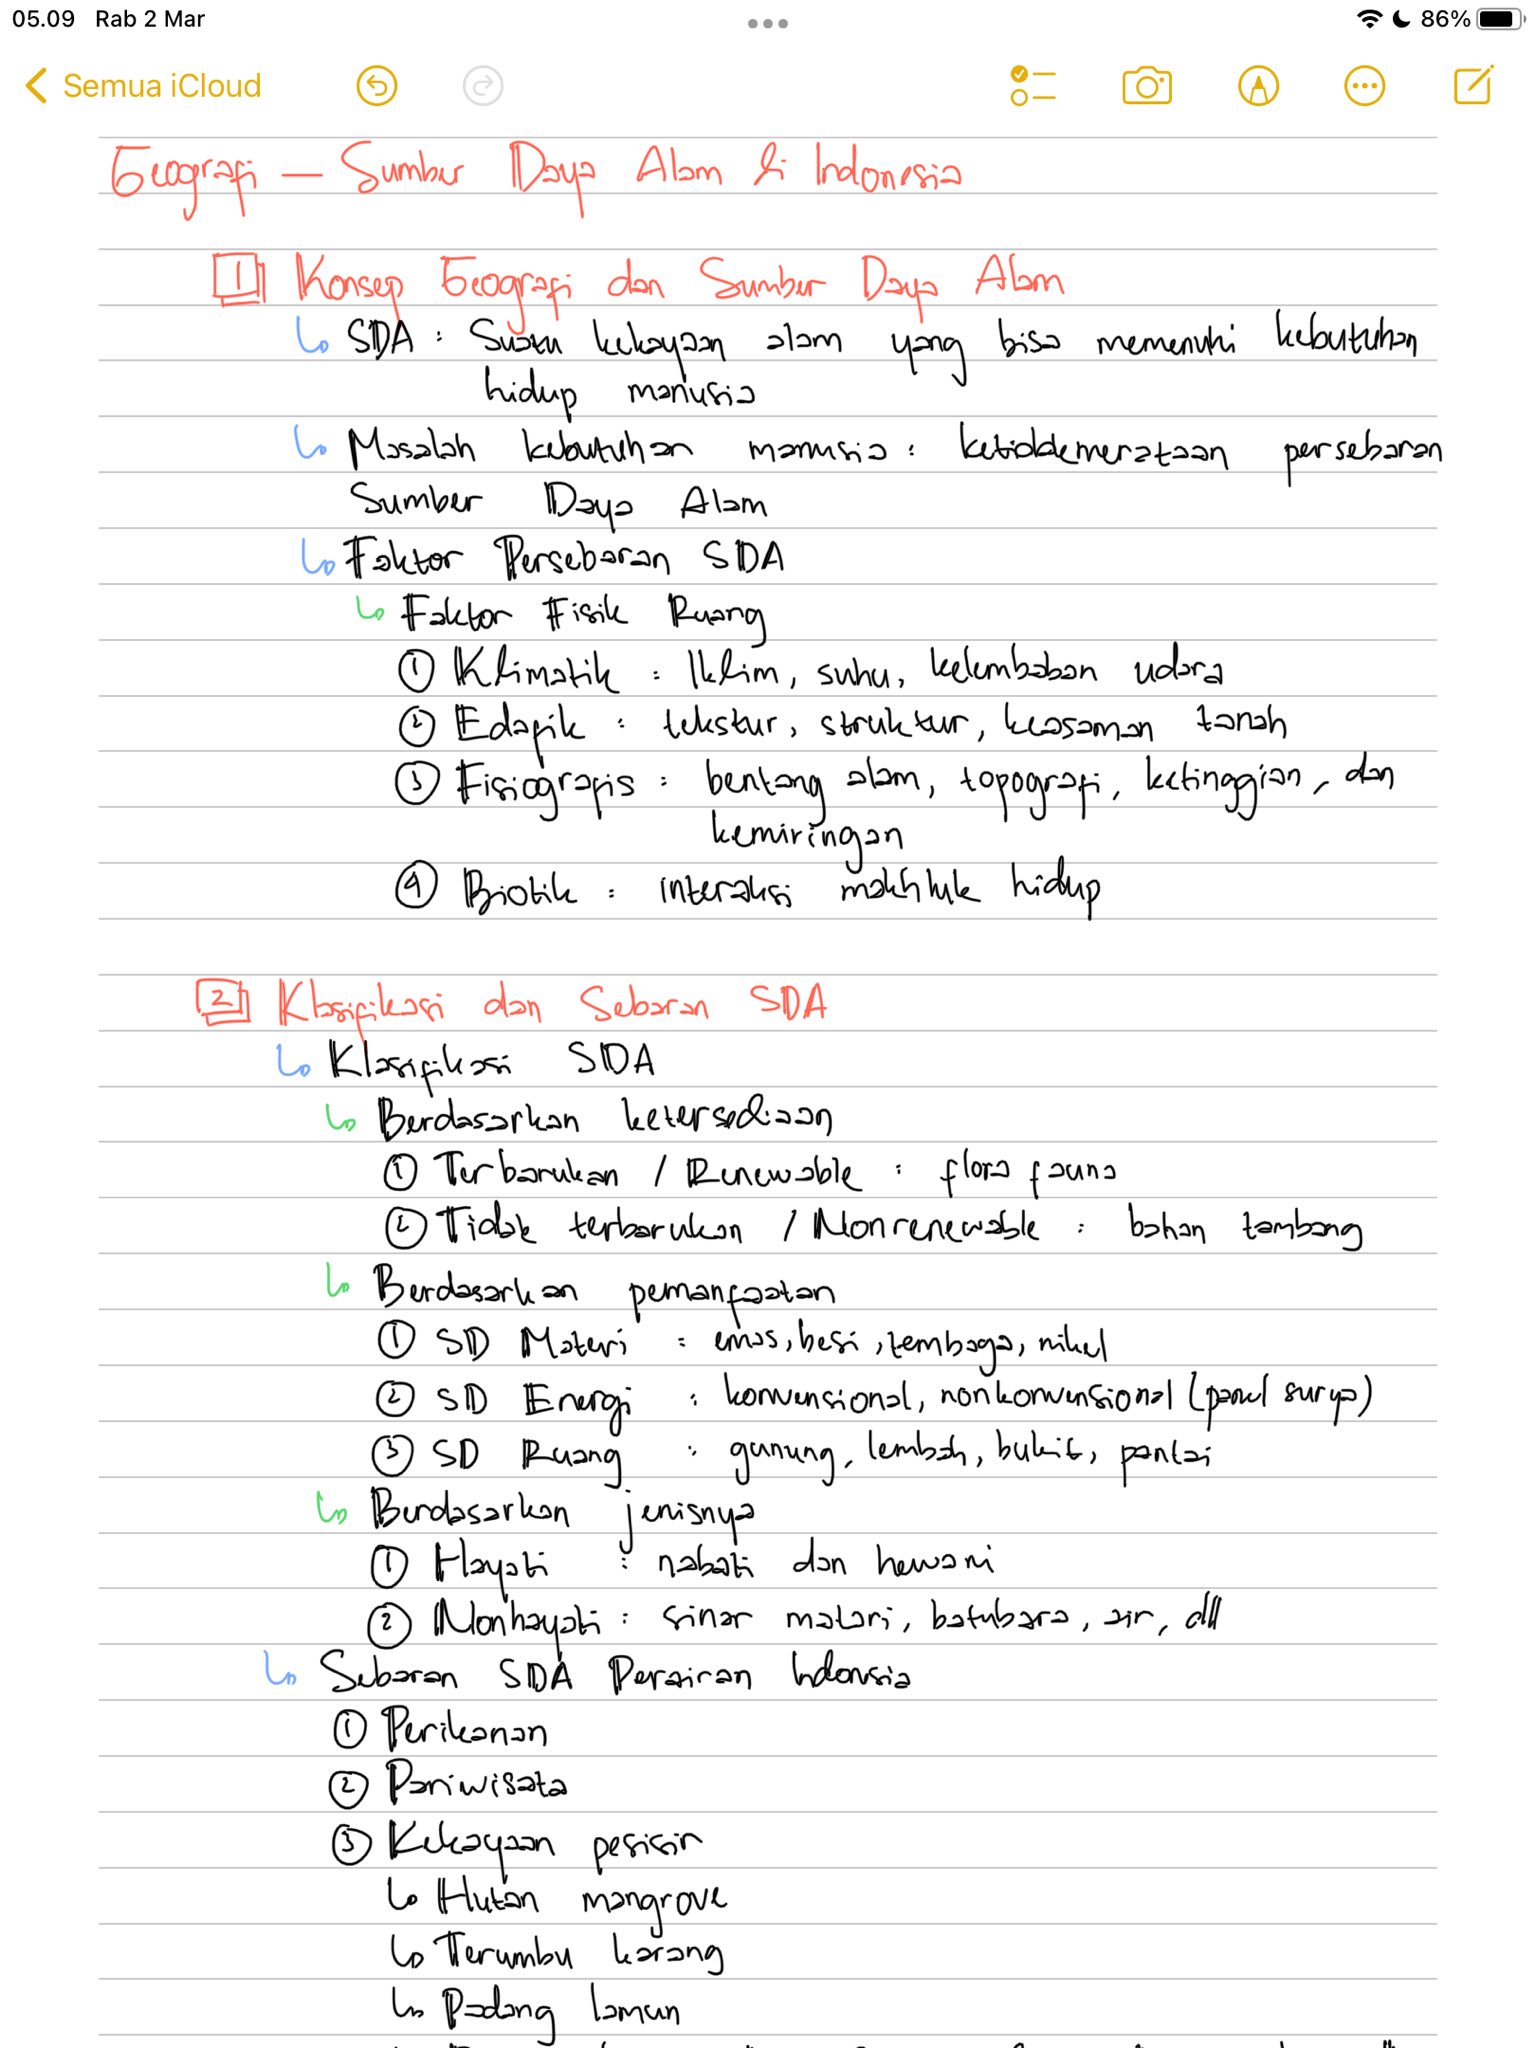 05.09 Rab 2 Mar
86%
Semua iCloud
Geografi — Sumber Daya Alam di Indonesia
1 Konsep Geografi dan Sumber Daya Alam
↳ SDA : Suatu kekayaan alam yang bisa memenuhi kebutuhan
hidup manusia
↳ Masalah kebutuhan manusia : ketidakmerataan persebaran
Sumber Daya Alam
↳ Faktor Persebaran SDA
↳ Faktor Fisik Ruang
① Klimatik : Iklim, suhu, kelembaban udara
② Edafik : tekstur, struktur, keasaman tanah
③ Fisiografis : bentang alam, topografi, ketinggian, dan
kemiringan
④ Biotik : interaksi makhluk hidup
2 Klasifikasi dan Sebaran SDA
↳ Klasifikasi SDA
↳ Berdasarkan ketersediaan
① Terbarukan / Renewable : flora fauna
② Tidak terbarukan / Nonrenewable : bahan tambang
↳ Berdasarkan pemanfaatan
① SD Materi : emas, besi, tembaga, nikel
② SD Energi : konvensional, nonkonvensional (panel surya)
③ SD Ruang : gunung, lembah, bukit, pantai
↳ Berdasarkan jenisnya
① Hayati : nabati dan hewani
② Nonhayati : sinar matari, batubara, air, dll
↳ Sebaran SDA Perairan Indonsia
① Perikanan
② Pariwisata
③ Kekayaan pesisir
↳ Hutan mangrove
↳ Terumbu karang
↳ Padang lamun